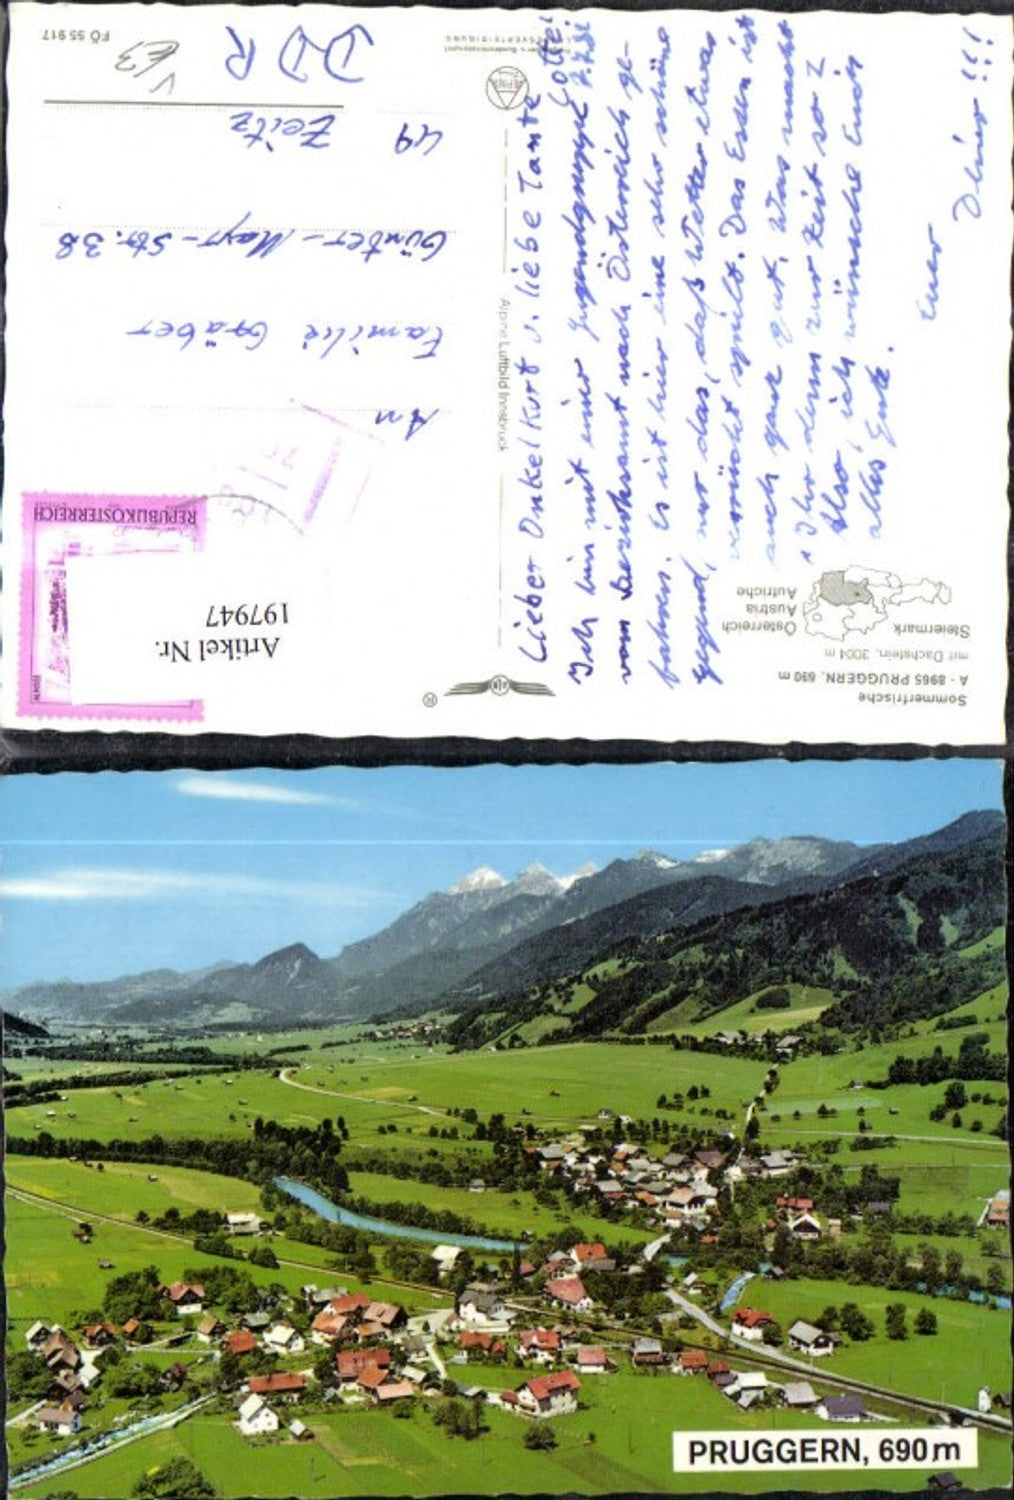 Sommerfrische
A - 8965 PRUGGERN, 690 m
mit Dachstein, 3004 m
Steiermark
Österreich
Austria
Autriche
Lieber Onkel Kurt u. liebe Tante Lotte!
Ich bin mit einer Jugendgruppe z. Zt.
vom Bezirksamt nach Österreich ge-
fahren. Es ist hier eine sehr schöne
Gegend, nur das, daß Wetter etwas
verrückt spielt. Das Essen ist
auch ganz gut. Was macht
Ihr denn zur Zeit so?
Also, ich wünsche Euch
alles Gute.
Euer
Alpine Luftbild Innsbruck
®
Artikel Nr.
197947
REPUBLIK ÖSTERREICH
An
Familie Gräber
Günter-Mayr-Str. 38
49 Zeitz
DDR
FO 55917
PRUGGERN, 690 m